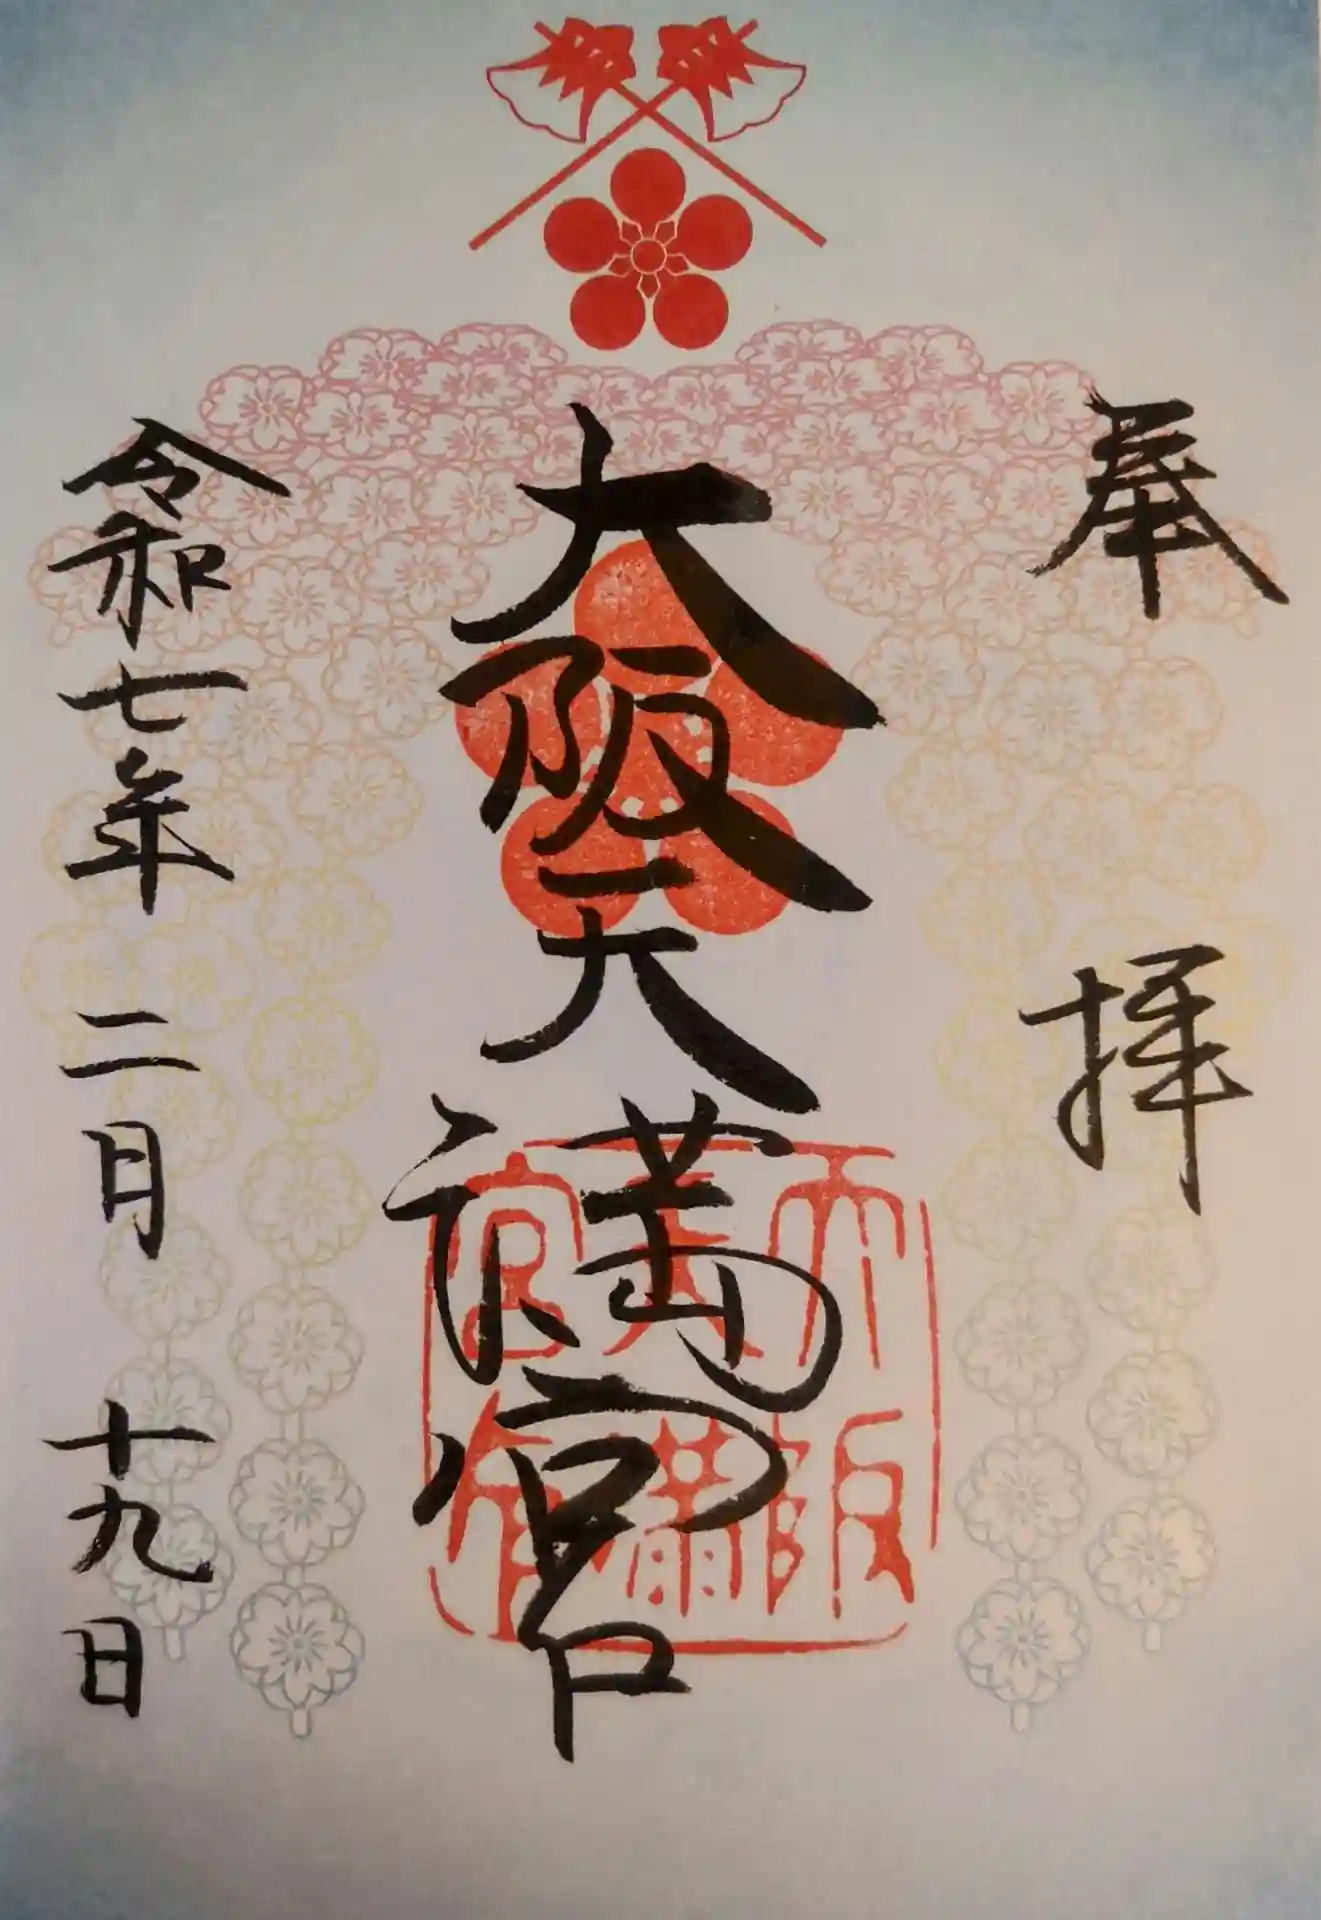 奉拝
大阪天満宮
大阪
天満
宮印
令和七年二月十九日